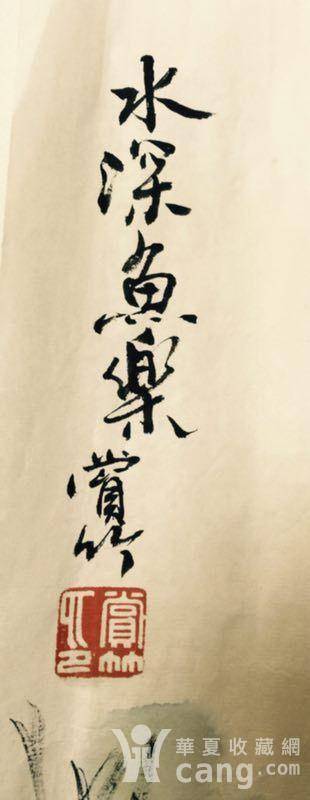 水深魚樂
賞竹
賞竹之印
華夏收藏網
cang.com